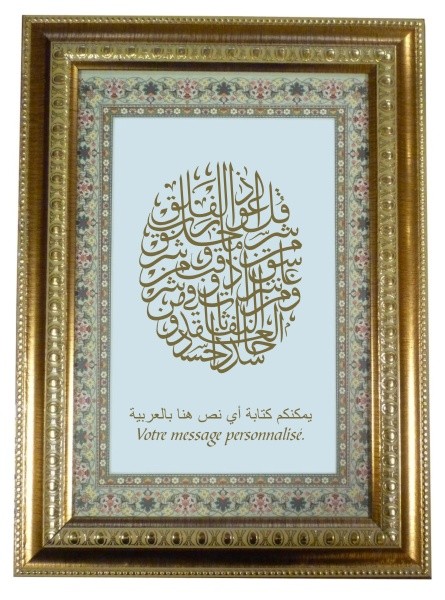 قل أعوذ برب الفلق
من شر ما خلق
ومن شر غاسق إذا وقب
ومن شر النفاثات في العقد
ومن شر حاسد إذا حسد
يمكنكم كتابة أي نص هنا بالعربية
Votre message personnalisé.